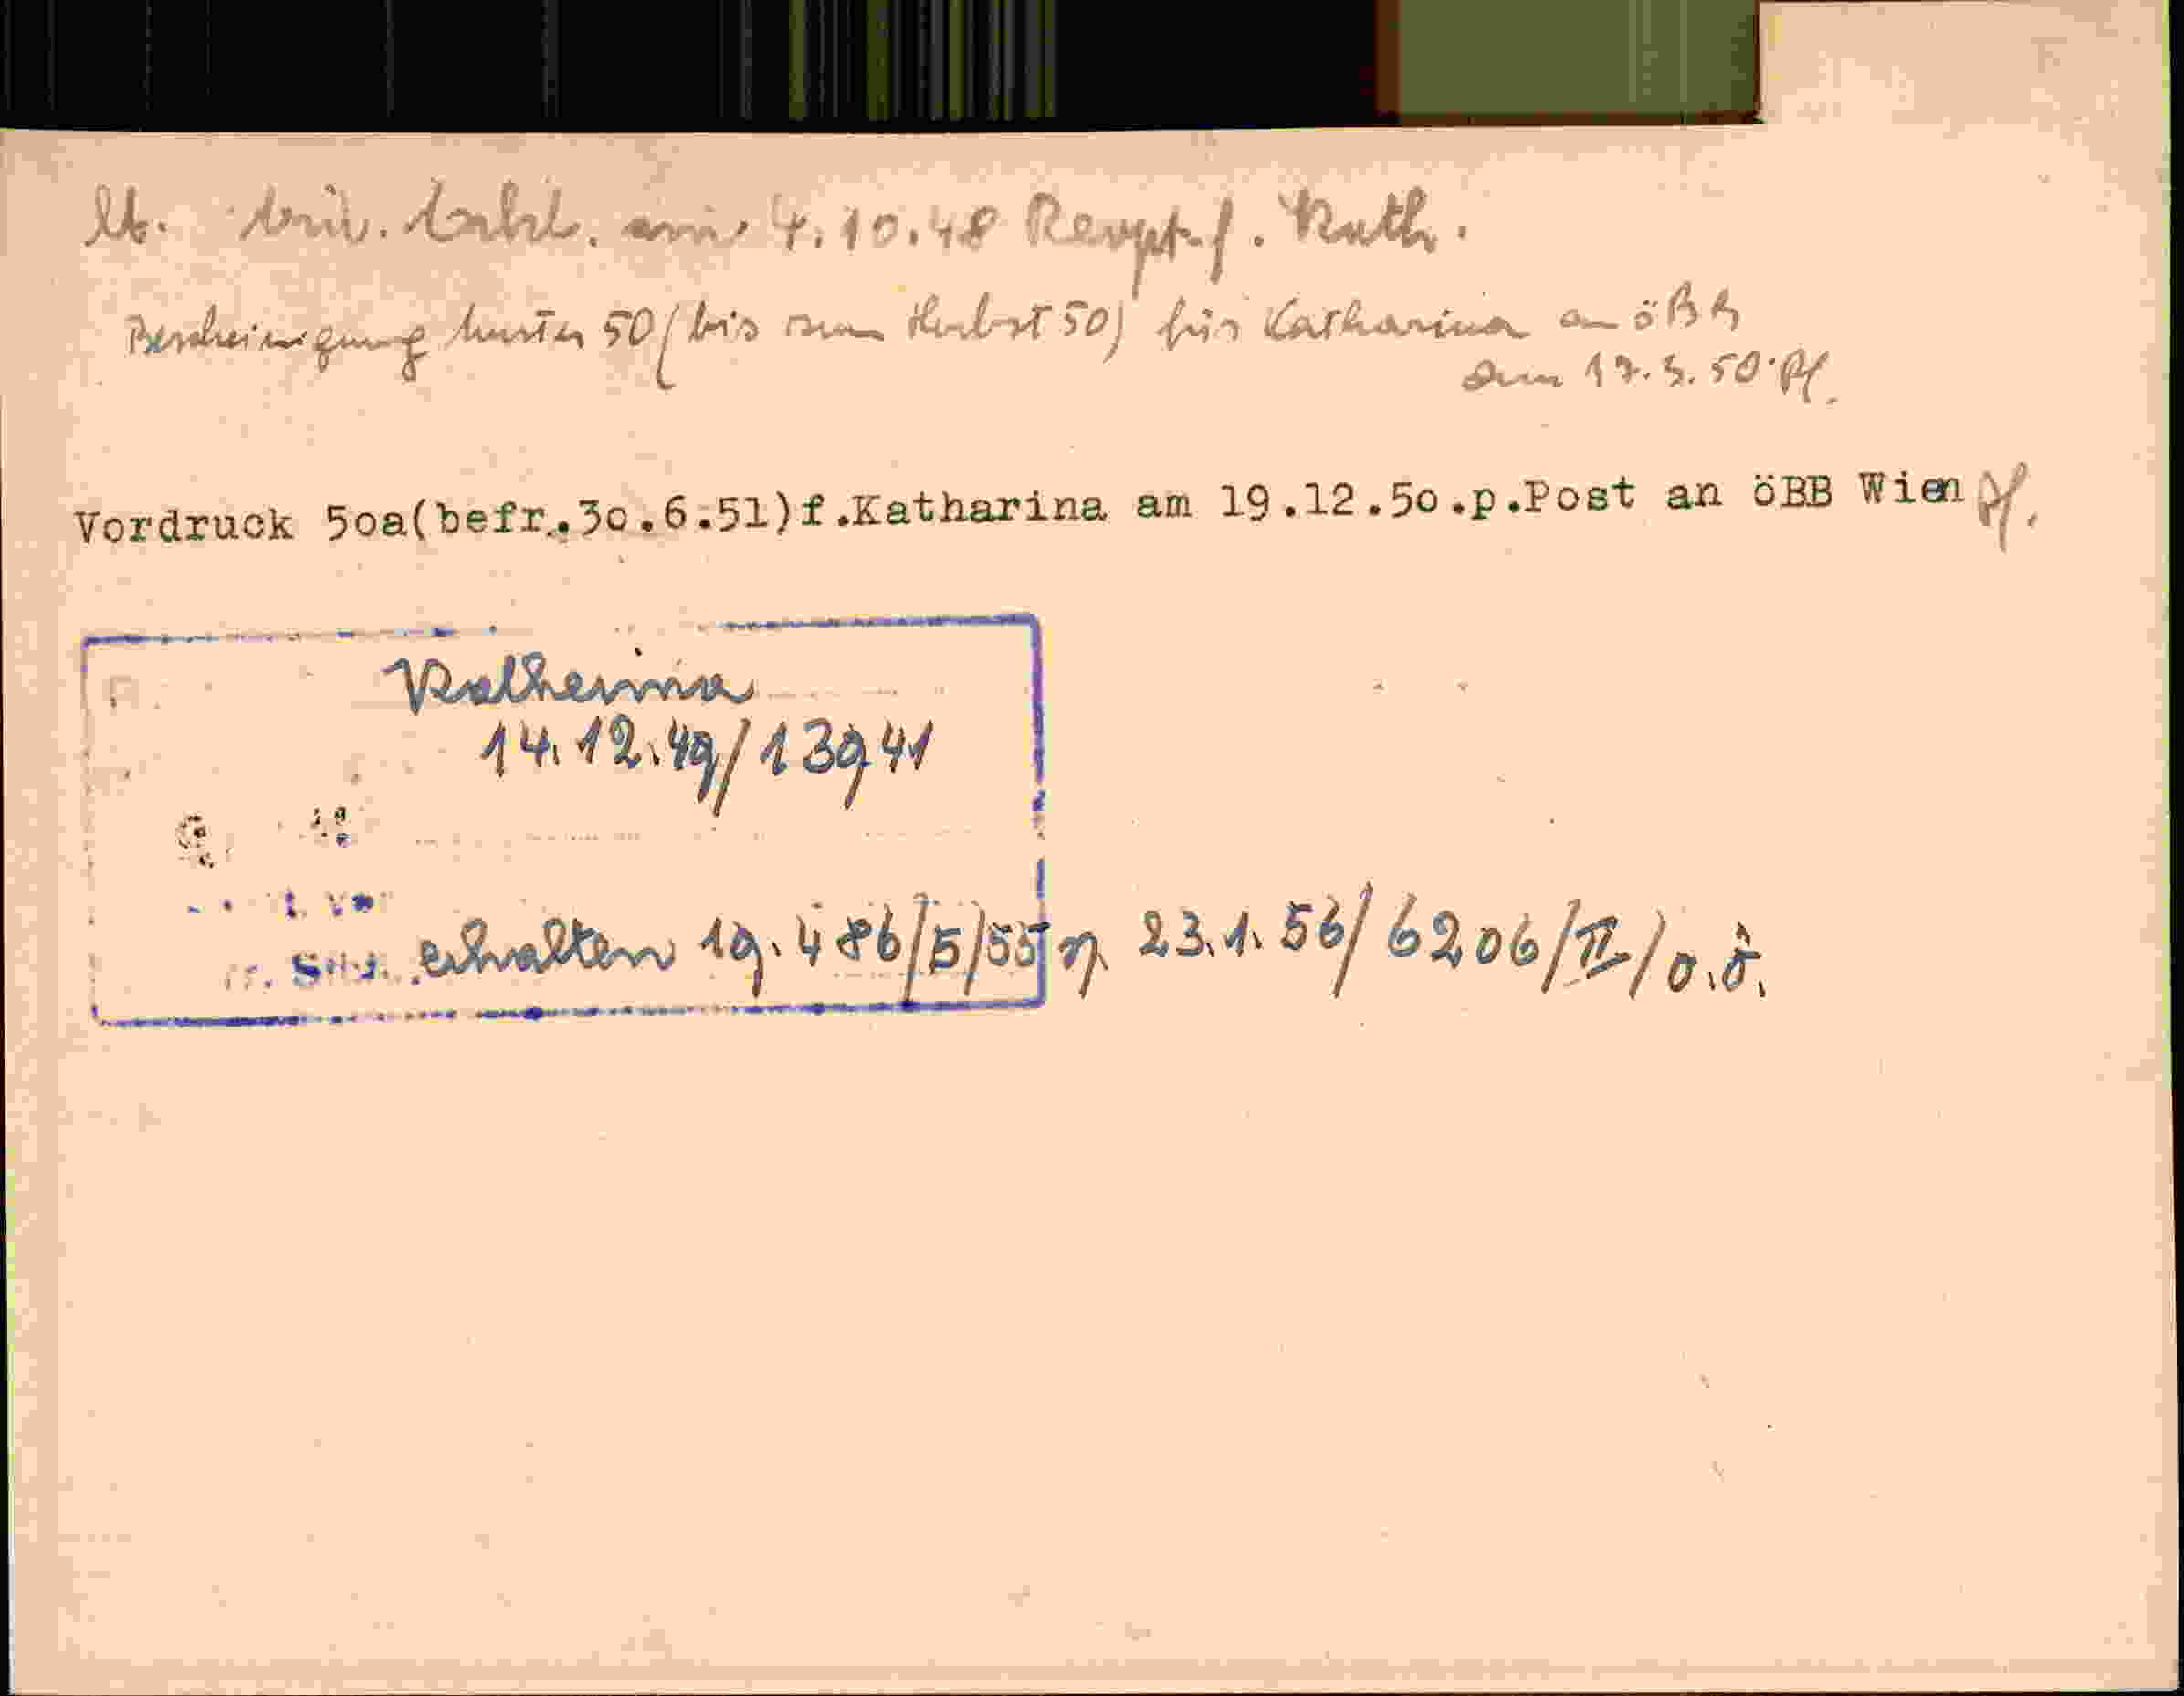 am 4.10.48 Kath.
Bescheinigung Muster 50 (bis zum Herbst 50) für Katharina an öBB
am 17.3.50 Pf.
Vordruck 5oa(befr.3o.6.51)f.Katharina am 19.12.5o.p.Post an öBB Wien Pf.
Katharina
14.12.49/13941
erhalten 19.486/5/55 23.1.56/6206/II/o.ö.